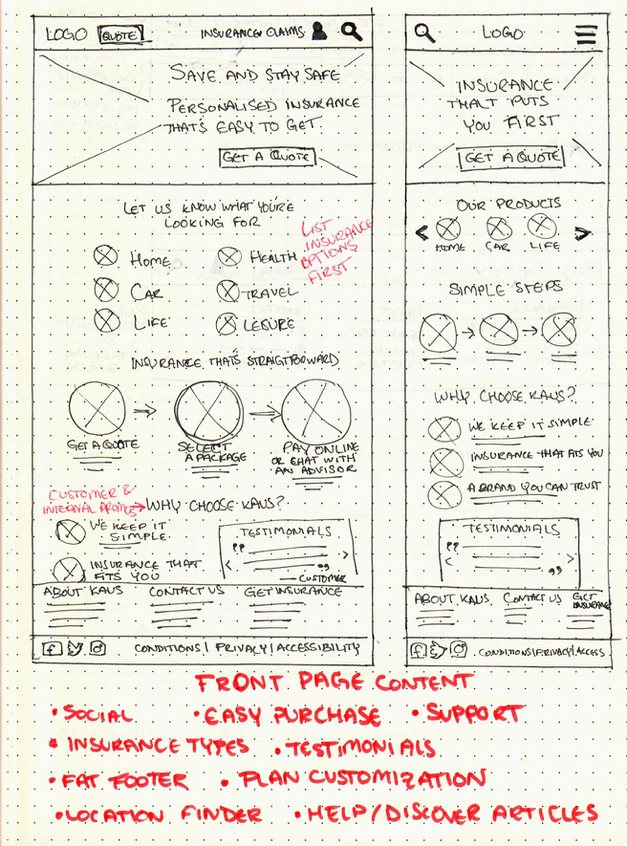 LOGO QUOTE INSURANCE CLAIMS
SAVE AND STAY SAFE
PERSONALISED INSURANCE
THAT'S EASY TO GET
GET A QUOTE
LET US KNOW WHAT YOU'RE
LOOKING FOR
LIST
INSURANCE
OPTIONS
FIRST
HOME HEALTH
CAR TRAVEL
LIFE LESIURE
INSURANCE THAT'S STRAIGTFORWARD
GET A QUOTE
SELECT
A PACKAGE
PAY ONLINE
OR CHAT WITH
AN ADVISOR
CUSTOMER &
INTERNAL
WHY CHOOSE KAUS?
WE KEEP IT
SIMPLE
INSURANCE THAT
FITS YOU
TESTIMONIALS
CUSTOMER
ABOUT KAUS CONTACT US GET INSURANCE
CONDITIONS | PRIVACY | ACCESSIBILITY
LOGO
INSURANCE
THALT PUTS
YOU FIRST
GET A QUOTE
OUR PRODUCTS
HOME CAR LIFE
SIMPLE STEPS
WHY CHOOSE KAUS?
WE KEEP IT SIMPLE
INSURANCE THAT FITS YOU
A BRAND YOU CAN TRUST
TESTIMONIALS
ABOUT KAUS CONTACT US GET
INSURANCE
CONDITIONS | PRIVACY | ACCESS
FRONT PAGE CONTENT
• SOCIAL • EASY PURCHASE • SUPPORT
• INSURANCE TYPES • TESTIMONIALS
• FAT FOOTER • PLAN CUSTOMIZATION
• LOCATION FINDER • HELP/DISCOVER ARTICLES